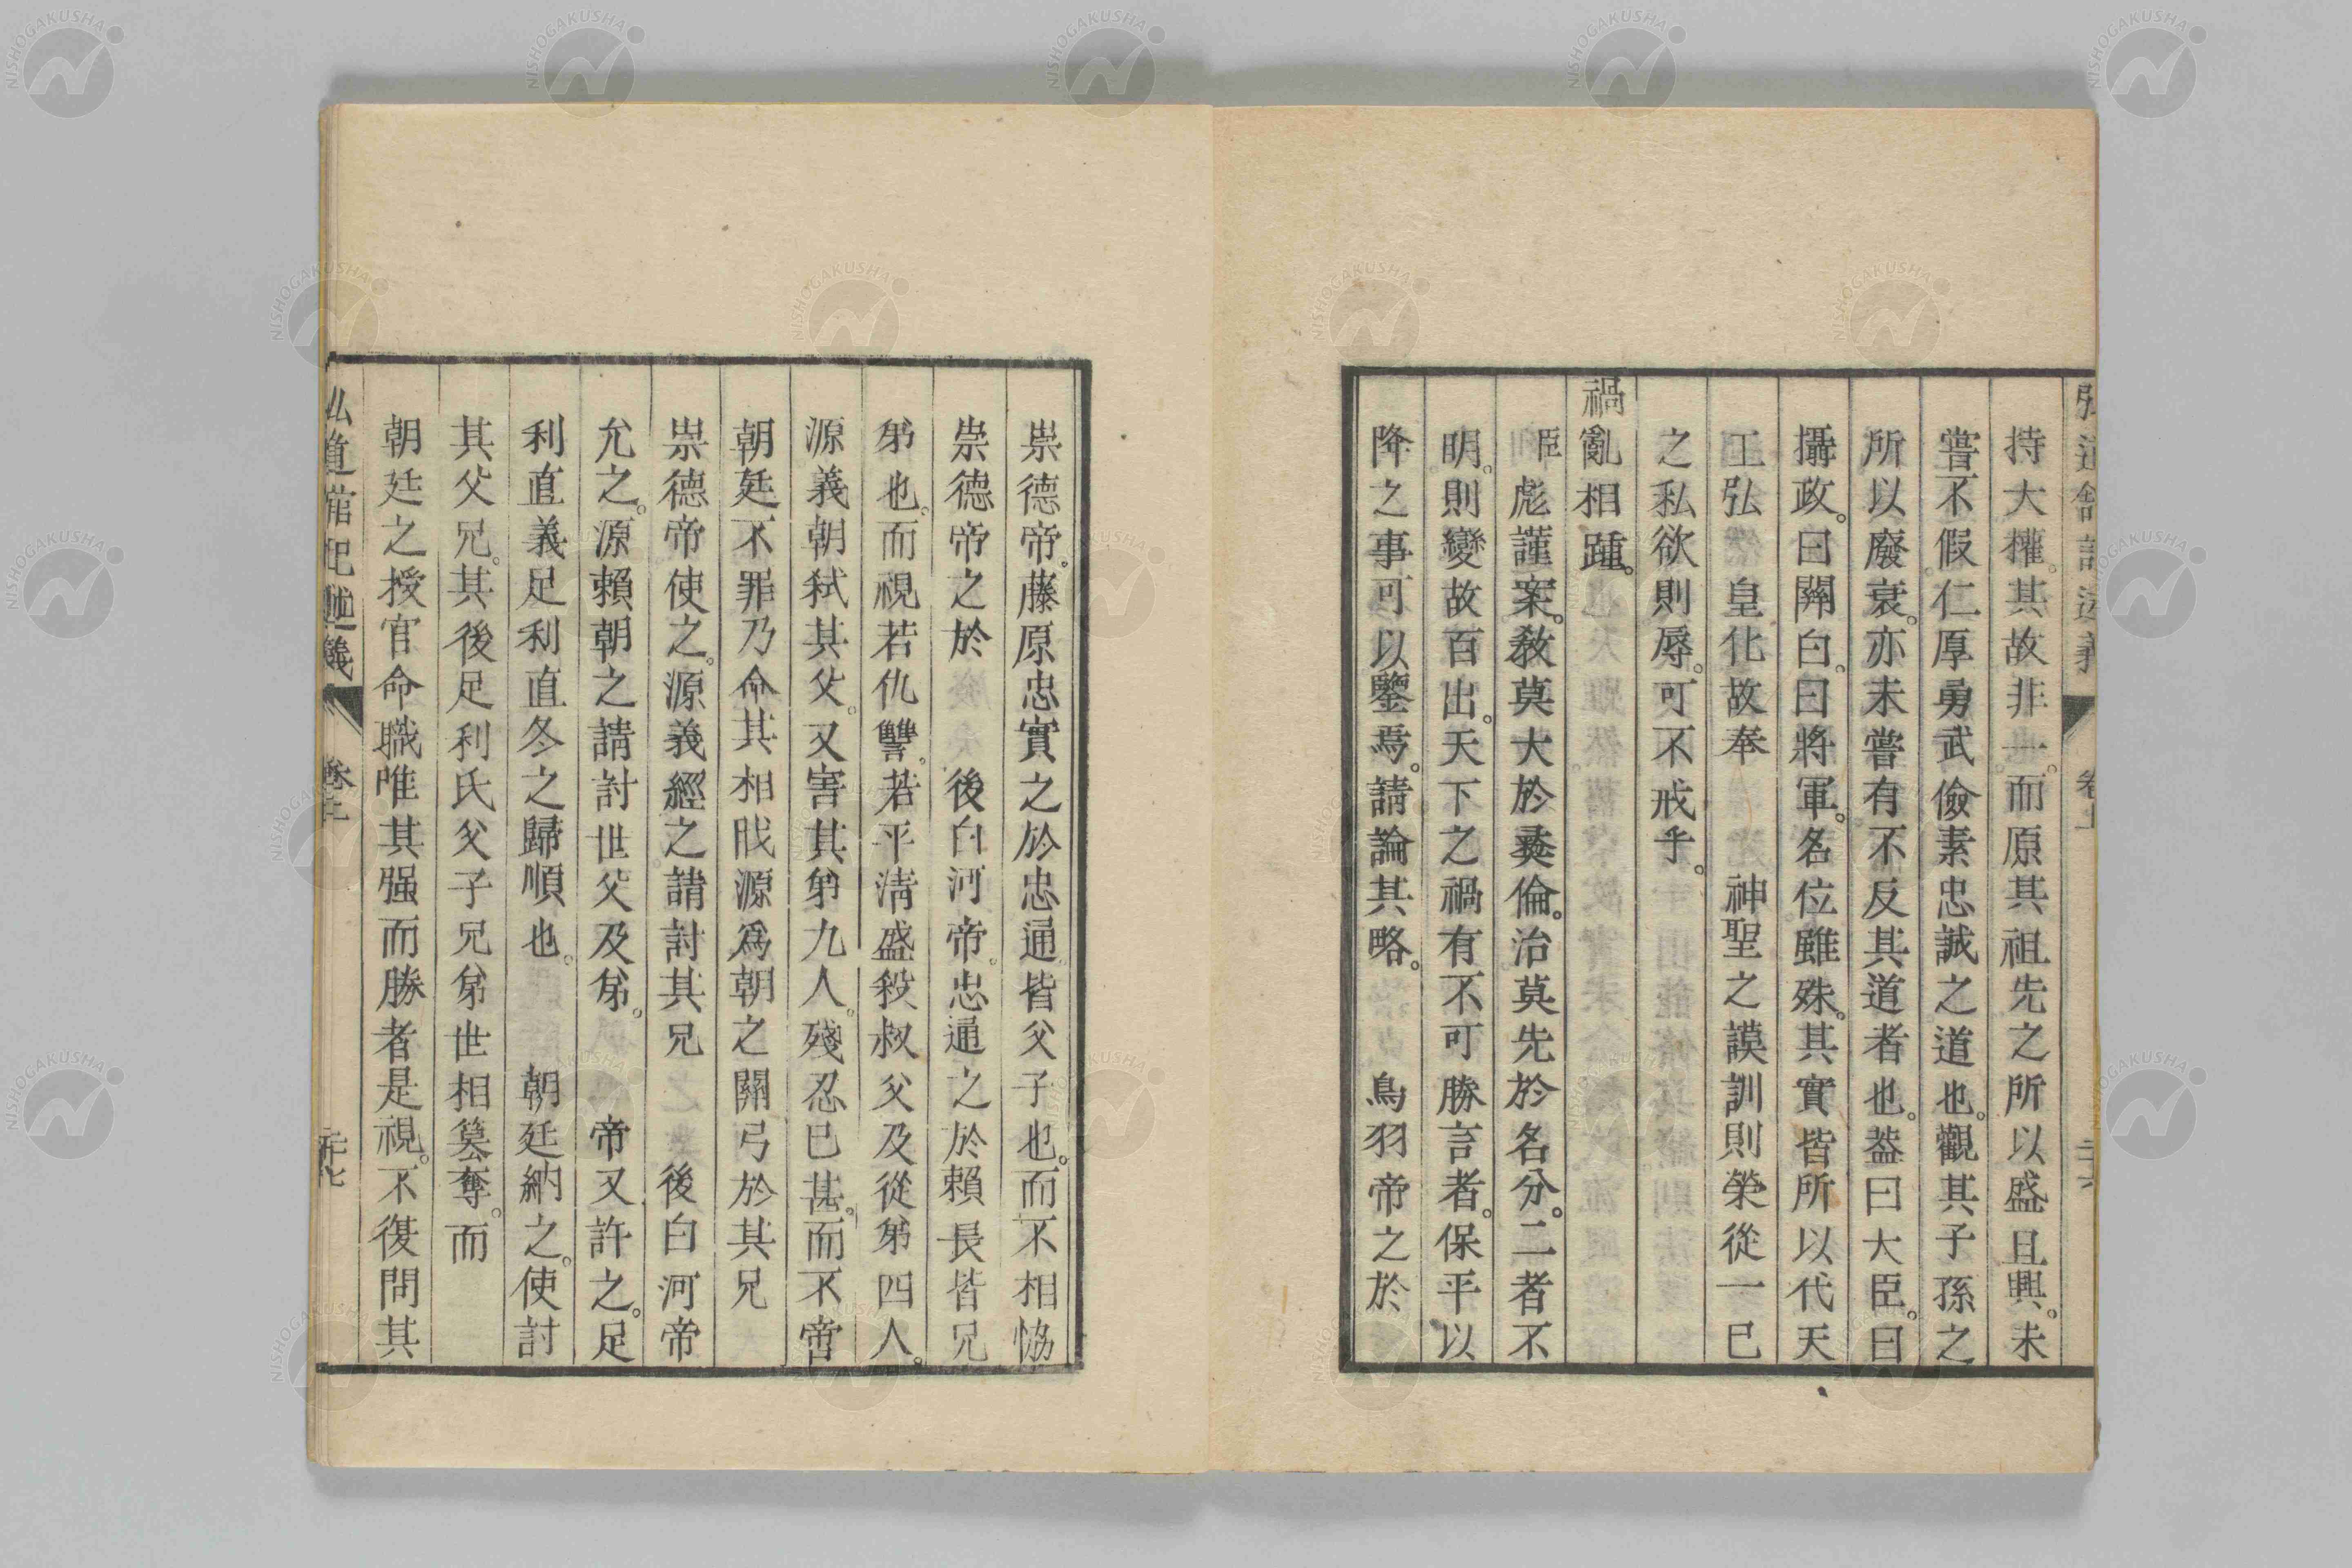 弘道館記述義 卷上 二十六
持大權。其故非一。而原其祖先之所以盛且興。未
嘗不假仁厚勇武儉素忠誠之道也。觀其子孫之
所以廢衰。亦未嘗有不反其道者也。葢曰大臣。曰
攝政。曰關白。曰將軍。名位雖殊。其實皆所以代天
工弘 皇化故奉 神聖之謨訓則榮從一己
之私欲則辱。可不戒乎。
禍亂相踵。
臣彪謹案。敎莫大於彜倫。治莫先於名分。二者不
明。則變故百出。天下之禍有不可勝言者。保平以
降之事可以鑒焉。請論其略。 鳥羽帝之於
崇德帝。藤原忠實之於忠通皆父子也。而不相恊
崇德帝之於 後白河帝。忠通之於賴長皆兄
弟也。而視若仇讐。若平淸盛殺叔父及從弟四人。
源義朝弑其父。又害其弟九人。殘忍已甚。而不啻
朝廷不罪乃命其相戕源爲朝之關弓於其兄
崇德帝使之。源義經之請討其兄 後白河帝
允之。源賴朝之請討世父及弟。 帝又許之。足
利直義足利直冬之歸順也。 朝廷納之。使討
其父兄。其後足利氏父子兄弟世相簒奪。而
朝廷之授官命職唯其强而勝者是視。不復問其
弘道館記述義 卷上 二十七
NISHOGAKUSHA